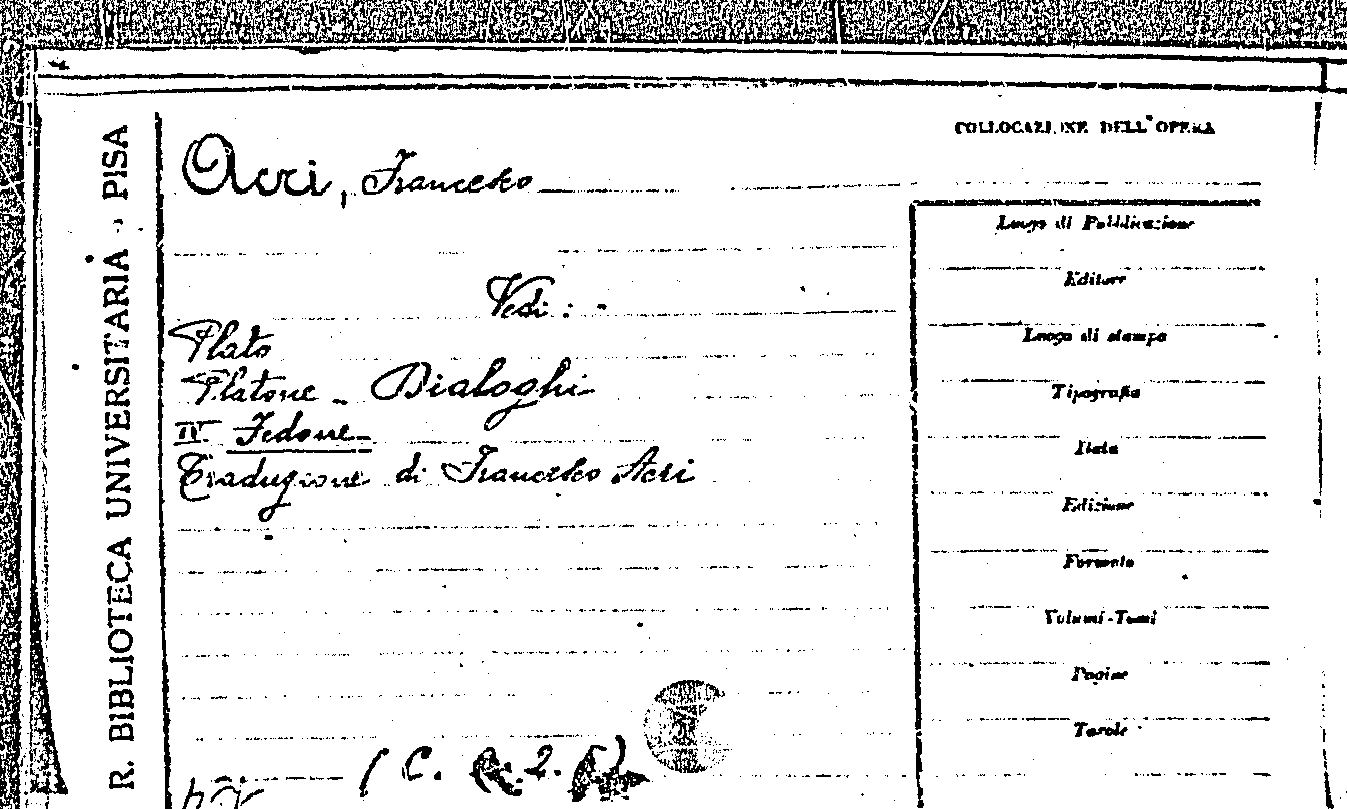 R. BIBLIOTECA UNIVERSITARIA - PISA
COLLOCAZIONE DELL'OPERA
Acri, Francesco
Vedi: -
Plato
Platone - Dialoghi
IV. Fedone -
Traduzione di Francesco Acri
Luogo di Pubblicazione
Editore
Luogo di stampa
Tipografia
Data
Edizione
Formato
Volumi-Tomi
Pagine
Tavole
( C. 2.